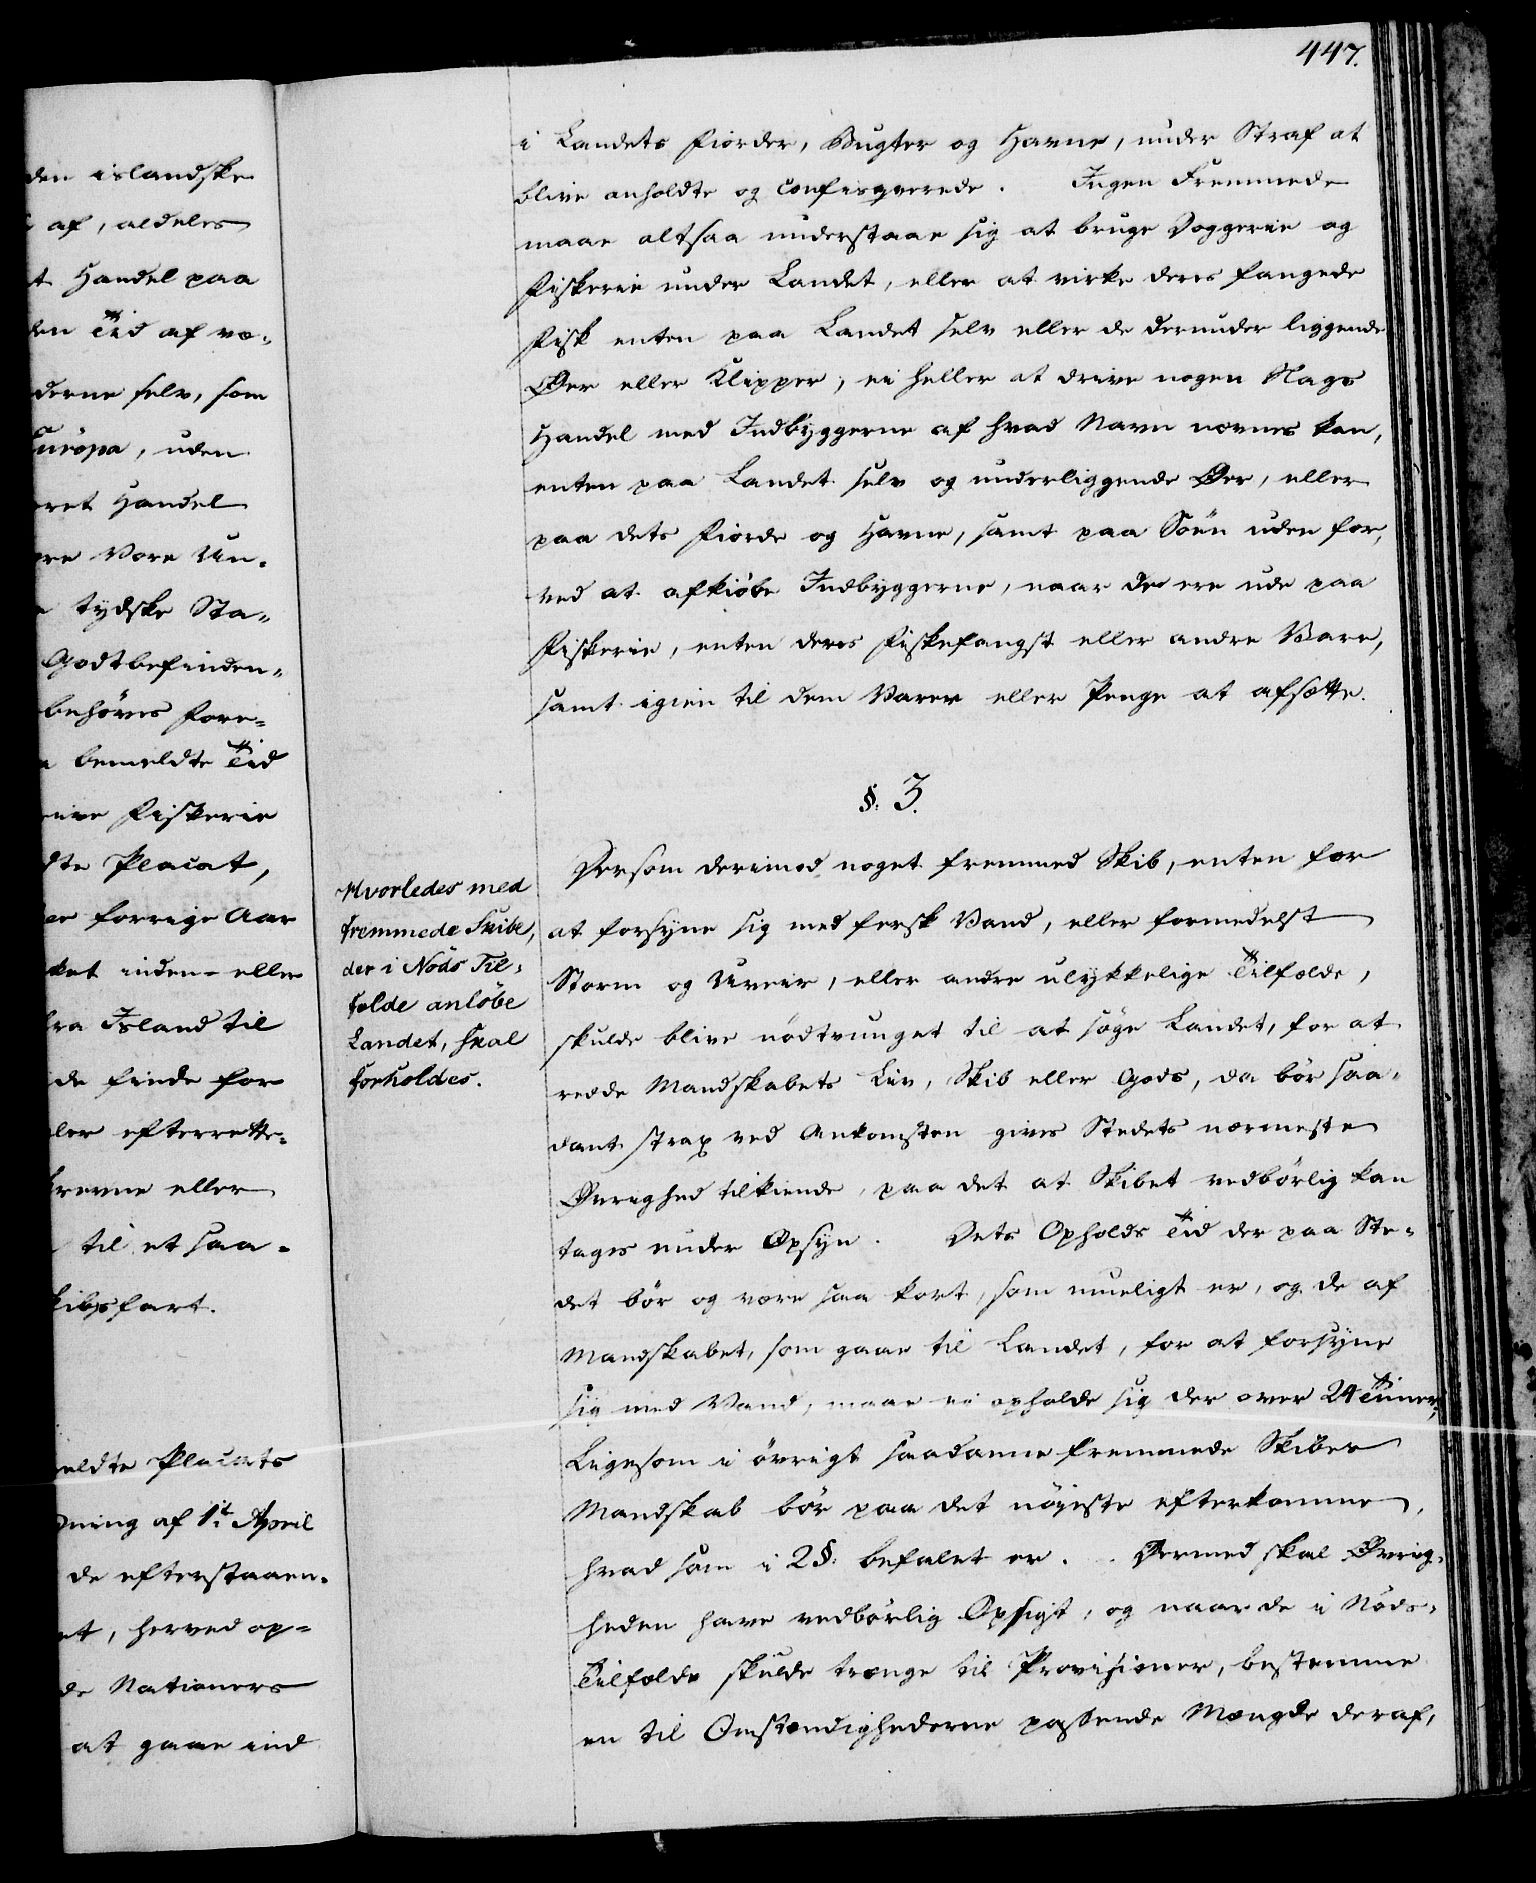 447.
den islandske
af, aldeles
t Handel paa
den Tid af væ-
derne selv, som
Europa, uden
oret Handel
ere Vore Un-
tydske Sta-
Godtbefinden-
behøves fore-
bemeldte Tid
rive Fiskerie
dte Placat,
er forrige Aar
ket inden- eller
fra Island til
de finde for
ler efterrette-
krevne eller
til et saa-
kibsfart.
eldte Placats
dning af 1te April
de efterstaaen-
et, herved op-
de Nationers
at gaae ind
i Landets Fiorder, Bugter og Havne, under Straf at
blive anholdte og confisqverede. Ingen Fremmede
maae altsaa understaae sig at bruge Doggerie og
Fiskerie under Landet, eller at virke deres fangede
Fisk enten paa Landet selv eller de derunder liggende
Øer eller Klipper; ei heller at drive nogen Slags
Handel med Indbyggerne af hvad Navn nævnes kan,
enten paa Landet selv og underliggende Øer, eller
paa dets Fiorde og Havne, samt paa Søen uden for,
ved at afkiøbe Indbyggerne, naar de ere ude paa
Fiskerie, enten deres Fiskefangst eller andre Vare,
samt igien til dem Varer eller Penge at afsætte.
§. 3.
Hvorledes med
fremmede Skibe,
der i Nöds Til-
fælde anlöbe
Landet, skal
forholdes.
Dersom derimod noget fremmed Skib, enten for
at forsyne sig med fersk Vand, eller formedelst
Storm og Uveir, eller andre ulykkelige Tilfælde,
skulde blive nödtvunget til at søge Landet, for at
redde Mandskabets Liv, Skib eller Gods, da bör saa-
dant strax ved Ankomsten gives Stedets nærmeste
Øvrighed tilkiende, paa det at Skibet vedbörlig kan
tages under Opsyn. Dets Opholds Tid der paa Ste-
det bör og være saa kort, som mueligt er, og de af
Mandskabet, som gaae til Landet, for at forsyne
sig med Vand, maae ei opholde sig der over 24 Timer;
Ligesom i övrigt saadanne fremmede Skibes
Mandskab bör paa det nöjeste efterkomme,
hvad som i 2 §. befalet er. Dermed skal Øvrig-
heden have vedbörlig Opsigt, og naar de i Nöds-
Tilfælde skulde trænge til Provisioner, bestemme
en til Omstændighederne passende Mængde deraf,